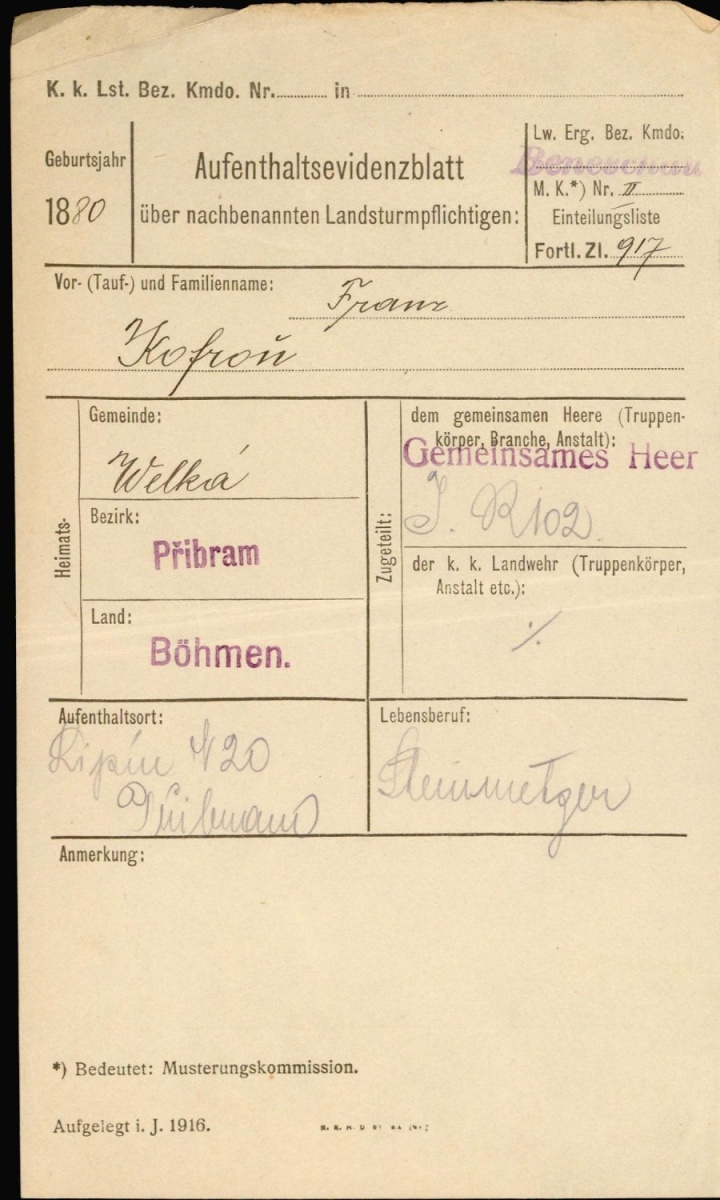 K. k. Lst. Bez. Kmdo. Nr. in
Geburtsjahr
1880
Aufenthaltsevidenzblatt
über nachbenannten Landsturmpflichtigen:
Lw. Erg. Bez. Kmdo.
Beneschau
M. K.*) Nr. II
Einteilungsliste
Fortl. Zl. 917
Vor- (Tauf-) und Familienname:
Franz
Kofroň
Heimats-
Gemeinde:
Welká
Bezirk:
Přibram
Land:
Böhmen.
Zugeteilt:
dem gemeinsamen Heere (Truppen-
körper, Branche, Anstalt):
Gemeinsames Heer
J. R 102.
der k. k. Landwehr (Truppenkörper,
Anstalt etc.):
·/.
Aufenthaltsort:
Lipín N 20
Přibram
Lebensberuf:
Steinmetzer
Anmerkung:
*) Bedeutet: Musterungskommission.
Aufgelegt i. J. 1916.